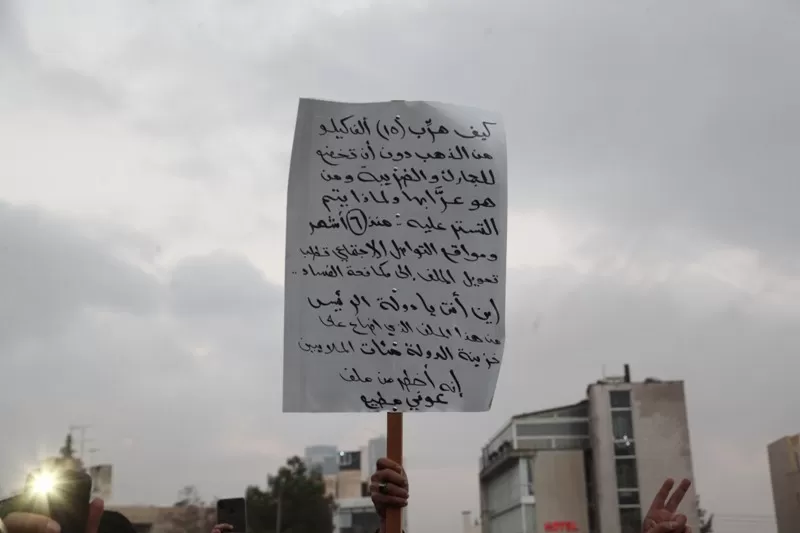 كيف هرِّب (١٥) ألف كيلو
من الذهب دون أن تخضع
للجمارك والضريبة ومن
هو عرَّابها ولماذا يتم
التستر عليه - منذ (٦) أشهر
ومواقع التواصل الاجتماعي تطلب
تحويل الملف إلى مكافحة الفساد ..
اين أنت يا دولة الرئيس
من هذا الملف الذي اضاع على
خزينة الدولة مئات الملايين
إنه أخطر من ملف
عوني مطيع
HOTEL